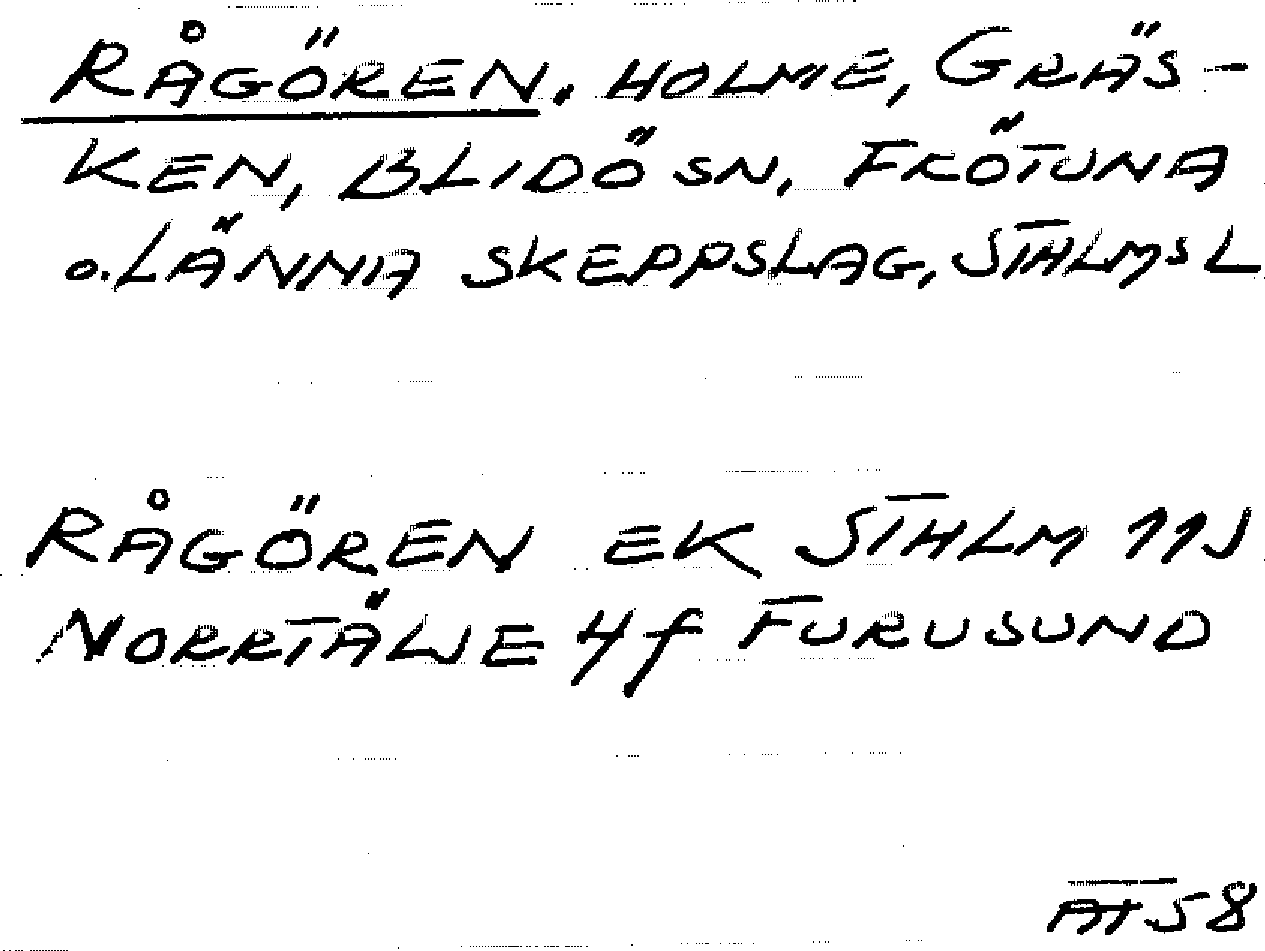 RÅGÖREN. HOLME, GRÄS-
KEN, BLIDÖ SN, FRÖTUNA
o. LÄNNA SKEPPSLAG, STHLMS L
RÅGÖREN EK STHLM 11J
NORRTÄLJE 4f FURUSUND
AT 58